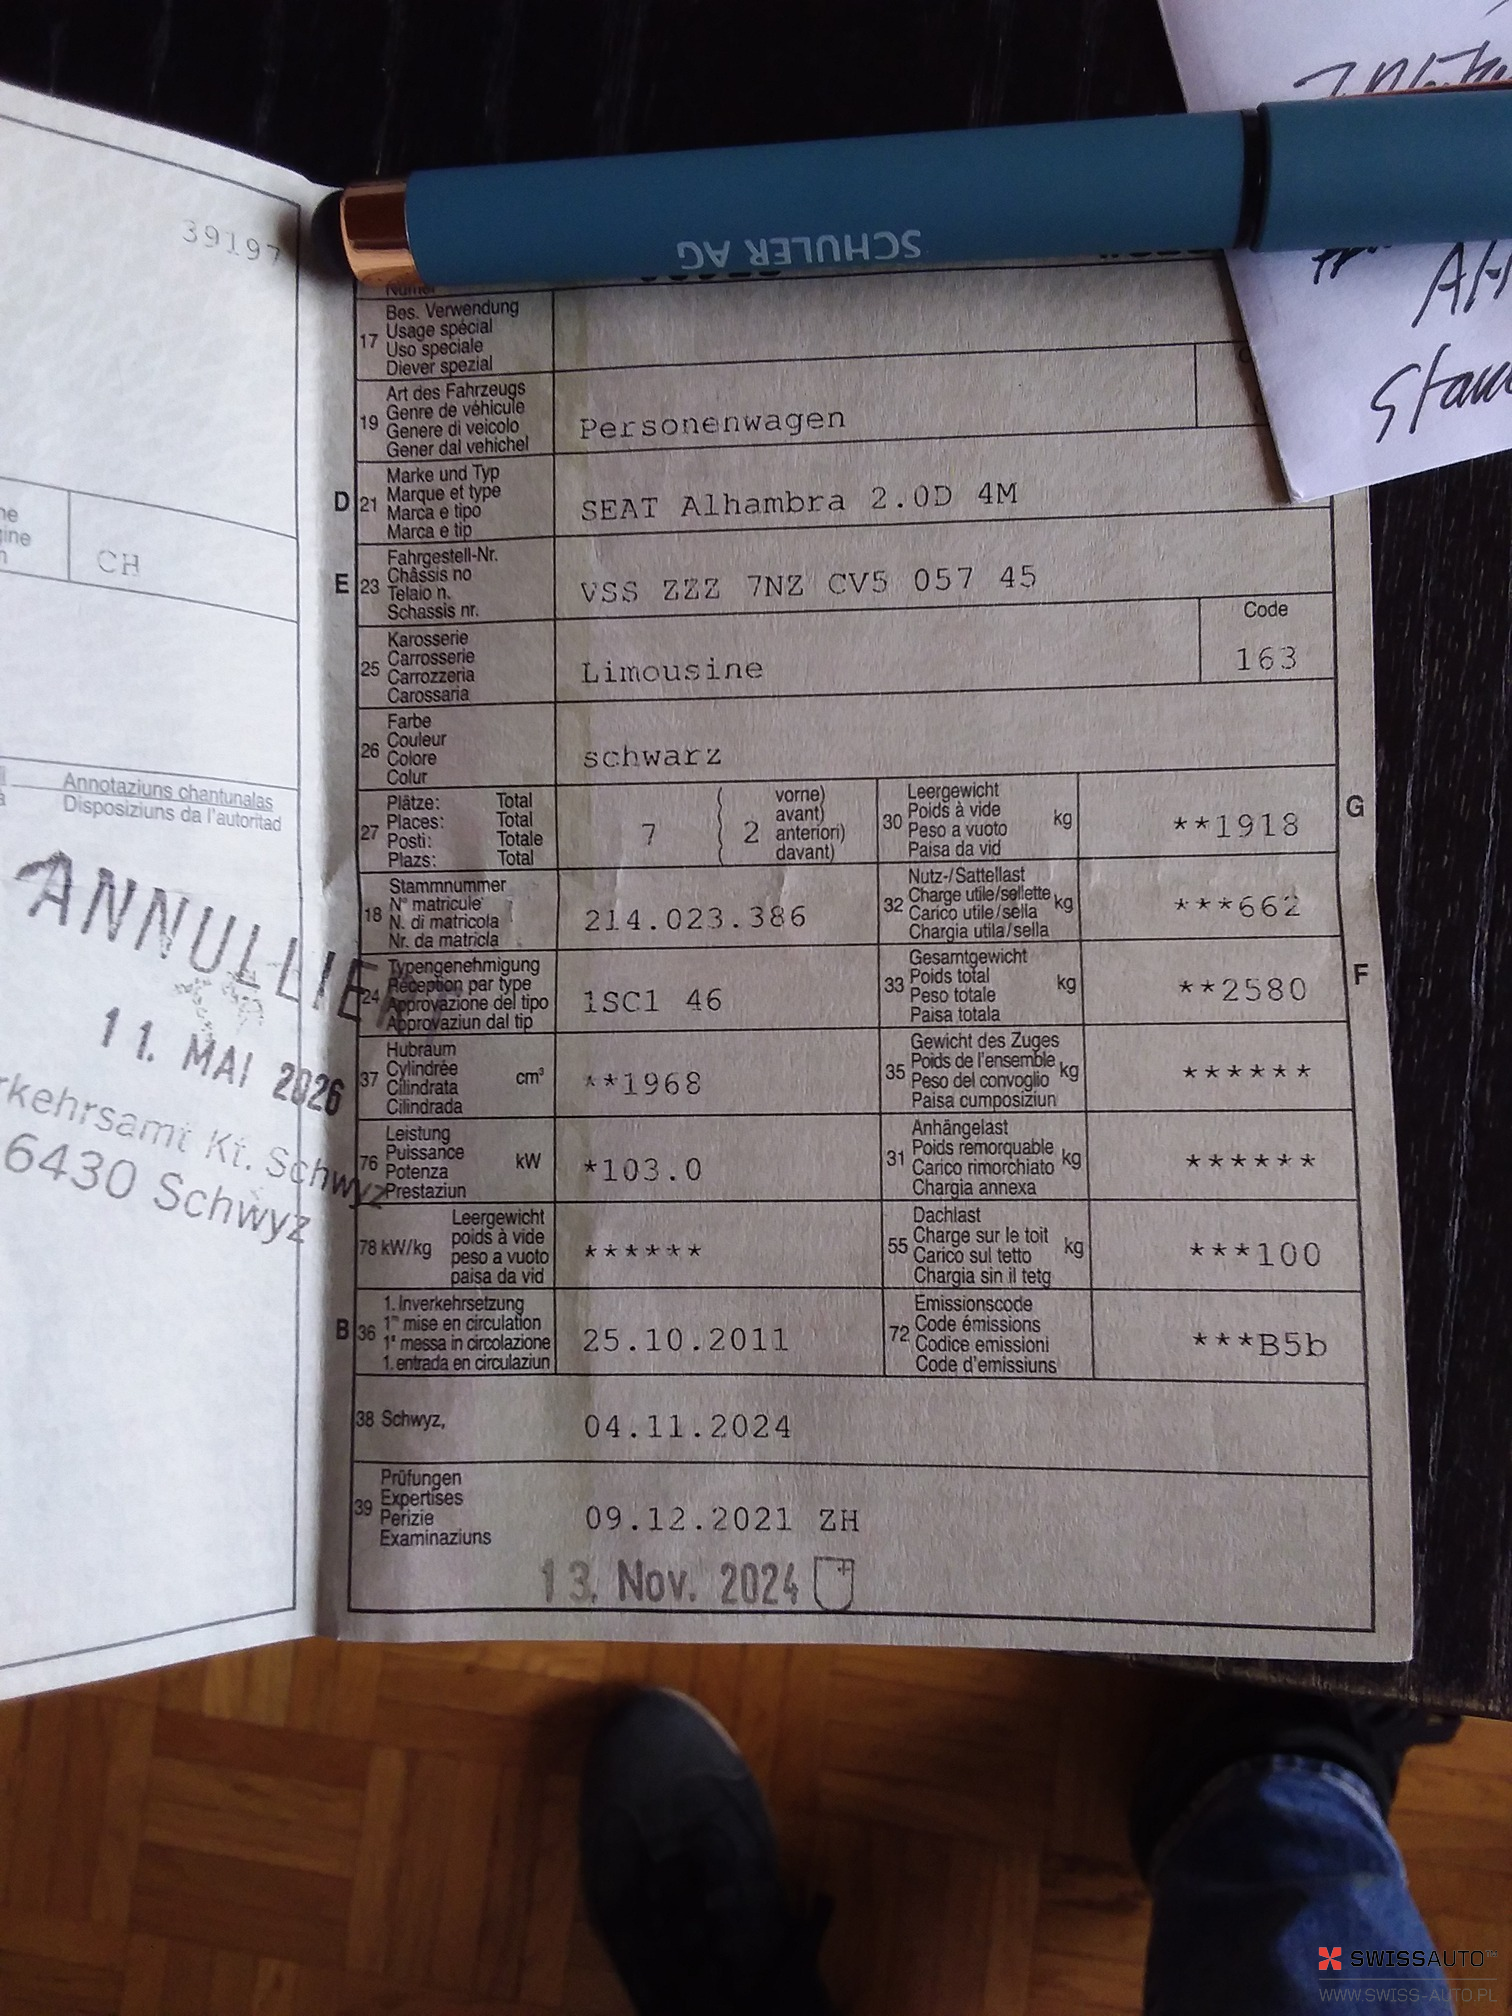 39197
CH
Annotaziuns chantunalas
Disposiziuns da l'autoritad
ANNULLIE
11. MAI 2026
rkehrsamt Kt. Schwyz
6430 Schwyz
SCHULER AG
17 Bes. Verwendung
Usage spécial
Uso speciale
Diever spezial
19 Art des Fahrzeugs
Genre de véhicule
Genere di veicolo
Gener dal vehichel
Personenwagen
D 21 Marke und Typ
Marque et type
Marca e tipo
Marca e tip
SEAT Alhambra 2.0D 4M
E 23 Fahrgestell-Nr.
Châssis no
Telaio n.
Schassis nr.
VSS ZZZ 7NZ CV5 057 45
25 Karosserie
Carrosserie
Carrozzeria
Carossaria
Limousine
Code
163
26 Farbe
Couleur
Colore
Colur
schwarz
27 Plätze: Total
Places: Total
Posti: Totale
Plazs: Total
7
2
vorne)
avant)
anteriori)
davant)
30 Leergewicht
Poids à vide kg
Peso a vuoto
Paisa da vid
**1918
G
18 Stammnummer
N° matricule
N. di matricola
Nr. da matricla
214.023.386
32 Nutz-/Sattellast
Charge utile/sellette kg
Carico utile/sella
Chargia utila/sella
***662
24 Typengenehmigung
Réception par type
Approvazione del tipo
Approvaziun dal tip
1SC1 46
33 Gesamtgewicht
Poids total kg
Peso totale
Paisa totala
**2580
F
37 Hubraum
Cylindrée cm³
Cilindrata
Cilindrada
**1968
35 Gewicht des Zuges
Poids de l'ensemble kg
Peso del convoglio
Paisa cumposiziun
******
76 Leistung
Puissance kW
Potenza
Prestaziun
*103.0
31 Anhängelast
Poids remorquable kg
Carico rimorchiato
Chargia annexa
******
78 kW/kg
Leergewicht
poids à vide
peso a vuoto
paisa da vid
******
55 Dachlast
Charge sur le toit kg
Carico sul tetto
Chargia sin il tetg
***100
B 36 1. Inverkehrsetzung
1re mise en circulation
1a messa in circolazione
1. entrada en circulaziun
25.10.2011
72 Emissionscode
Code émissions
Codice emissioni
Code d'emissiuns
***B5b
38 Schwyz,
04.11.2024
39 Prüfungen
Expertises
Perizie
Examinaziuns
09.12.2021 ZH
13. Nov. 2024
SWISSAUTO
WWW.SWISS-AUTO.PL